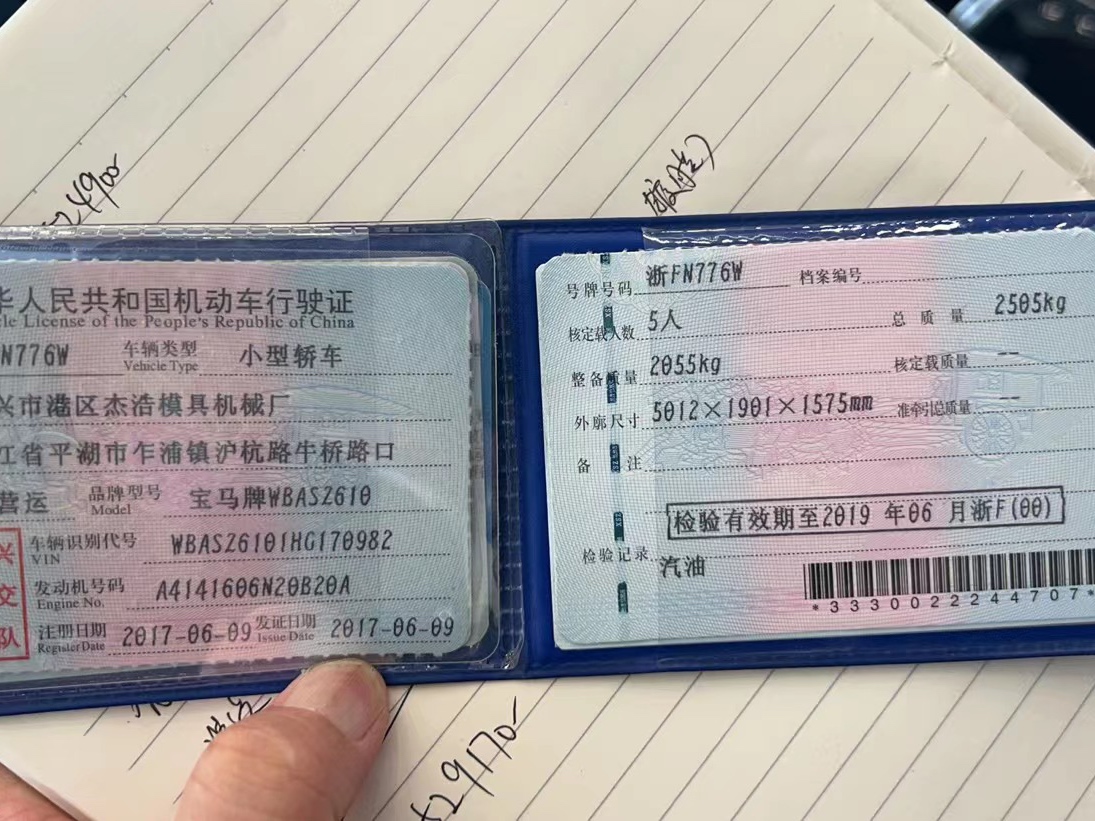 24900-
假肢)
华人民共和国机动车行驶证
cle License of the People's Republic of China
N776W 车辆类型 Vehicle Type 小型轿车
兴市港区杰浩模具机械厂
江省平湖市乍浦镇沪杭路牛桥路口
营运 品牌型号 Model 宝马牌WBAS2610
车辆识别代号 VIN WBAS26101HG170982
发动机号码 Engine No. A4141606N20B20A
注册日期 Register Date 2017-06-09 发证日期 Issue Date 2017-06-09
兴
交
队
号牌号码 浙FN776W 档案编号
核定载人数 5人 总质量 2505kg
整备质量 2055kg 核定载质量 --
外廓尺寸 5012×1901×1575mm 准牵引总质量 --
备注
检验有效期至2019 年06 月浙F(00)
检验记录 汽油
*3330022244707*
29170-